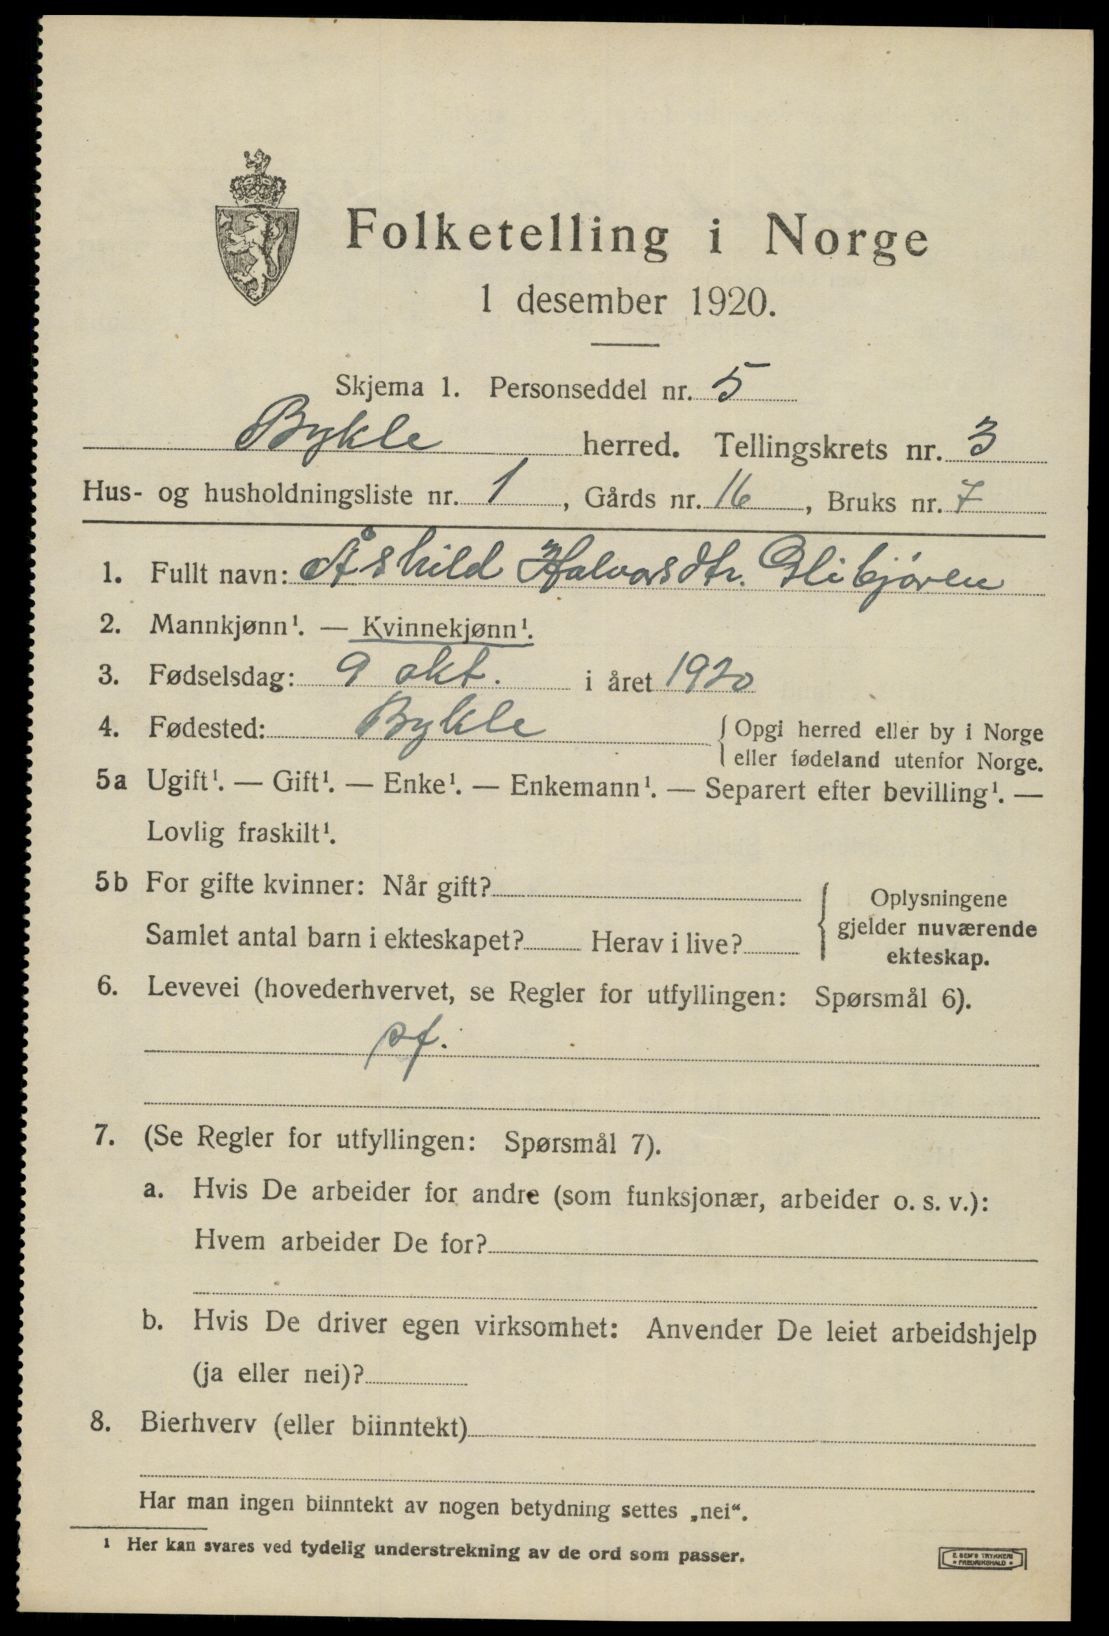 Folketelling i Norge
1 desember 1920.
Skjema 1. Personseddel nr. 5
Bykle herred. Tellingskrets nr. 3
Hus- og husholdningsliste nr. 1, Gårds nr. 16, Bruks nr. 7
1. Fullt navn: Åshild Halvorsdtr. Glibjøren
2. Mannkjønn¹. — Kvinnekjønn¹.
3. Fødselsdag: 9 okt. i året 1920
4. Fødested: Bykle {Opgi herred eller by i Norge
eller fødeland utenfor Norge.
5a Ugift¹. — Gift¹. — Enke¹. — Enkemann¹. — Separert efter bevilling¹. —
Lovlig fraskilt¹.
5b For gifte kvinner: Når gift?
Samlet antal barn i ekteskapet? Herav i live?
{ Oplysningene
gjelder nuværende
ekteskap.
6. Levevei (hovederhvervet, se Regler for utfyllingen: Spørsmål 6).
sf.
7. (Se Regler for utfyllingen: Spørsmål 7).
a. Hvis De arbeider for andre (som funksjonær, arbeider o. s. v.):
Hvem arbeider De for?
b. Hvis De driver egen virksomhet: Anvender De leiet arbeidshjelp
(ja eller nei)?
8. Bierhverv (eller biinntekt)
Har man ingen biinntekt av nogen betydning settes „nei“.
¹ Her kan svares ved tydelig understrekning av de ord som passer.
E. SEM'S TRYKKERI
FREDRIKSHALD